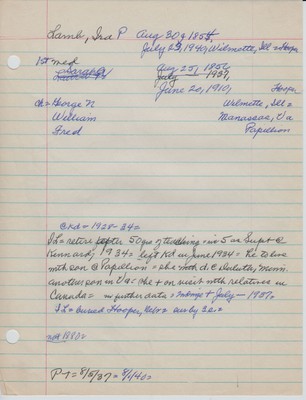 Lamb, Ira P Aug 30, 1855,
July 25, 1940, Wilmette, Ill = Hooper
1st med
Aug 25, 1856,
July 1937,
June 20, 1910, Hooper
ch = George N Wilmette, Ill =
William Manassas, Va
Fred Papillion
@ Kd = 1928-34 =
IL = retire after 50 yrs of teaching = in 5 as Supt @
Kennard, 1934 = left Kd in June 1934 = Re to live
with son @ Papillion = she d. @ Duluth, Minn.
another son in Va = she + on visit with relatives in
Canada = July - 1937 =
IL = buried Hooper, Nebr =
not 1880 =
P-t = 8/5/37 = 8/1/40 =